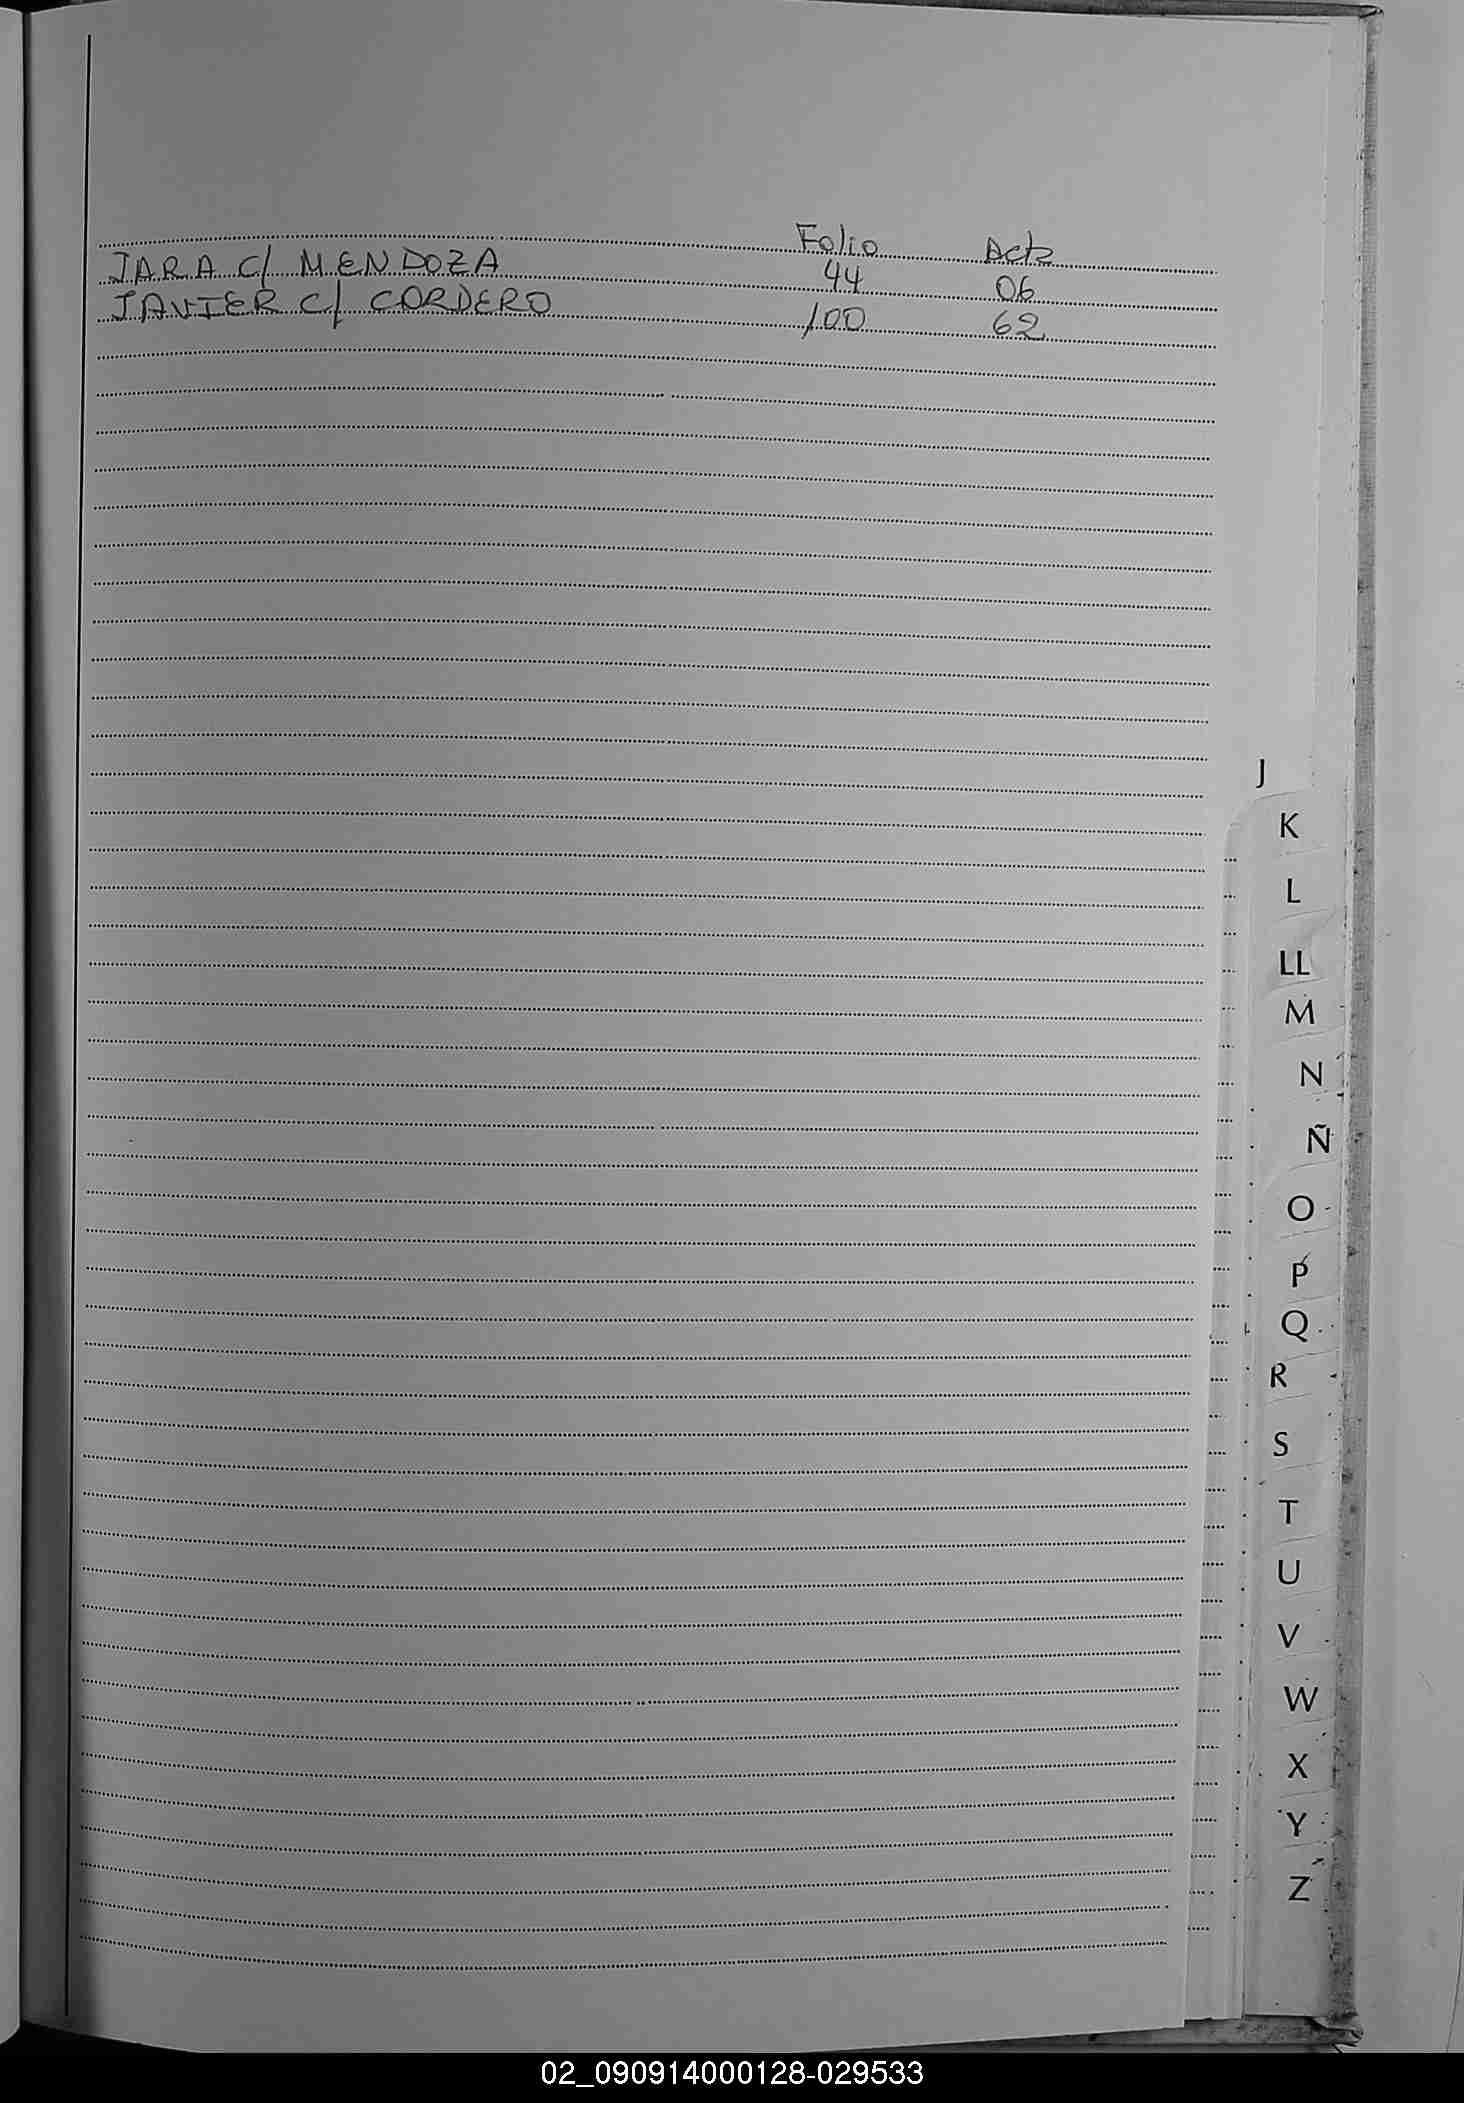 Folio Acta
JARA C/ MENDOZA 44 06
JAVIER C/ CORDERO 100 62
J
K
L
LL
M
N
Ñ
O
P
Q
R
S
T
U
V
W
X
Y
Z
02_090914000128-029533